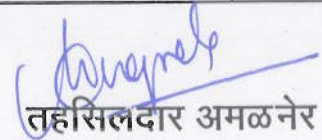 तहसिलदार अमळनेर